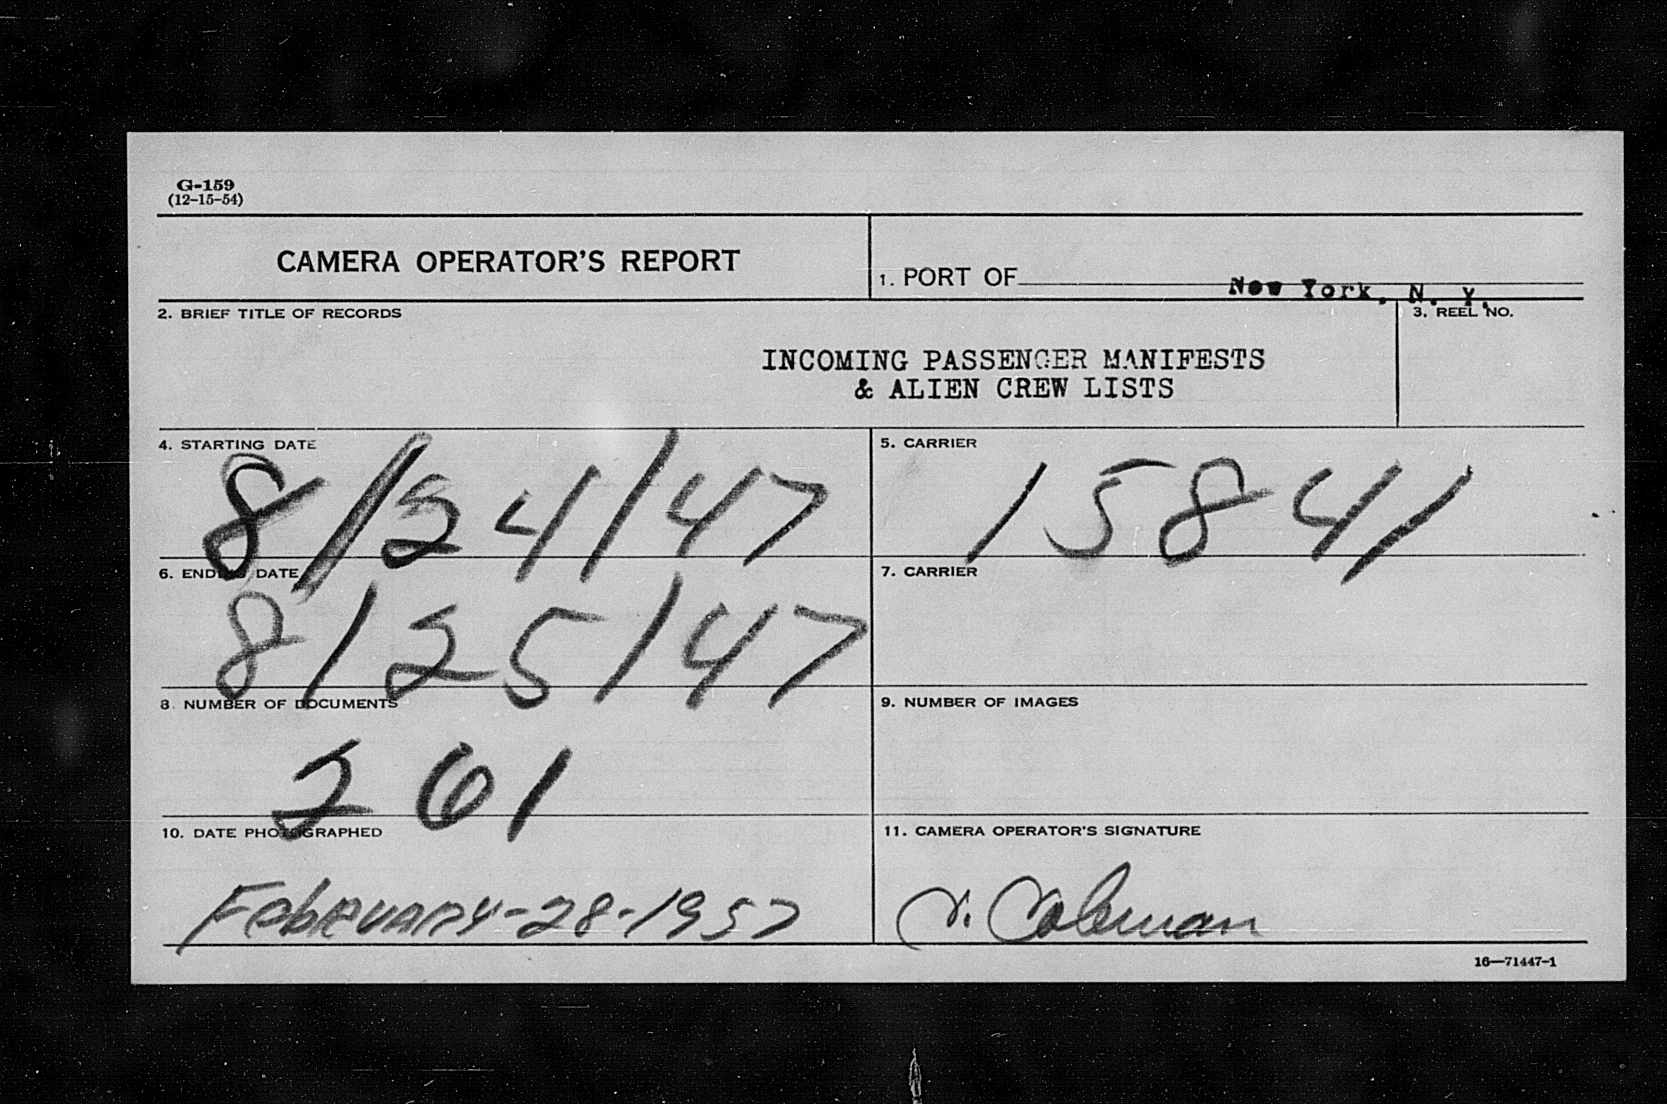 G-159
(12-15-54)
CAMERA OPERATOR'S REPORT
1. PORT OF New York, N. Y.
2. BRIEF TITLE OF RECORDS
INCOMING PASSENGER MANIFESTS
& ALIEN CREW LISTS
3. REEL NO.
4. STARTING DATE
8/24/47
5. CARRIER
15841
6. ENDING DATE
8/25/47
7. CARRIER
8. NUMBER OF DOCUMENTS
261
9. NUMBER OF IMAGES
10. DATE PHOTOGRAPHED
February-28-1957
11. CAMERA OPERATOR'S SIGNATURE
Coleman
16—71447-1